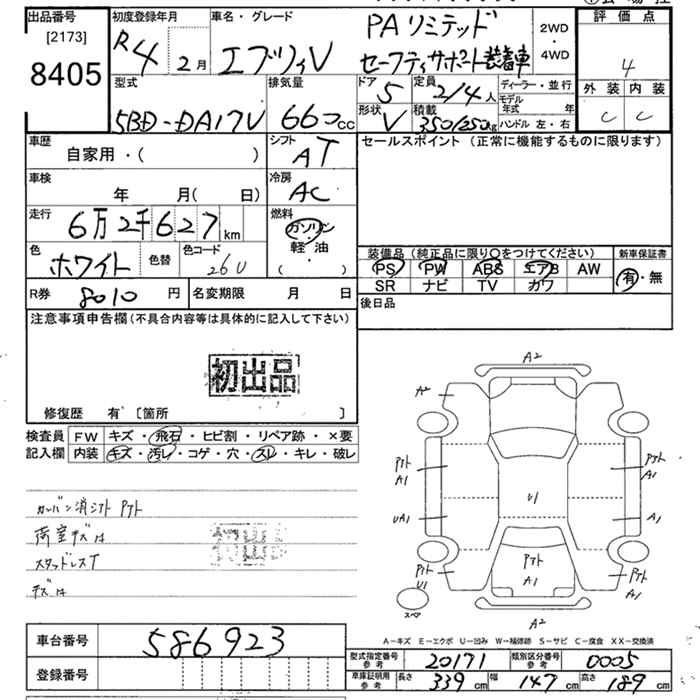 出品番号
[2173]
8405
初度登録年月
R4 2月
車名・グレード
エブリィV
PAリミテッド
セーフティサポート装着車
2WD
・
4WD
評価点
4
外装 内装
C C
型式
5BD-DA17V
排気量
660cc
ドア
5
定員
2/4人
形状
V
積載
350/250kg
ディーラー・並行
モデル年式 年
ハンドル 左・右
車歴
自家用・( )
シフト
AT
セールスポイント (正常に機能するものに限ります)
車検
年 月( 日)
冷房
AC
走行
6万2千627km
燃料
ガソリン
・
軽・油
( )
色
ホワイト
色替
色コード
26U
装備品 (純正品に限り○をつけてください)
新車保証書
PS PW ABS エアB AW
有・無
SR ナビ TV カワ
R券 8010円
名変期限 月 日
後日品
注意事項申告欄 (不具合内容等は具体的に記入して下さい)
初出品
修復歴 有 [箇所 ]
検査員 FW キズ・飛石・ヒビ割・リペア跡・×要
記入欄 内装 キズ・汚レ・コゲ・穴・スレ・キレ・破レ
A2
A2
アト
A1
アト
A1
U1
UA1
A1
アト
U1
アト
A1
アト
A1
スペア
A2
荷室キズ汚
スタッドレスT
キズ汚
初出品
A-キズ E-エクボ U-凹み W-補修跡 S-サビ C-腐食 XX-交換済
車台番号 586923
登録番号
型式指定番号
参考
20171
類別区分番号
参考
0005
車庫証明用
参考
長さ 339cm
幅 147cm
高さ 189cm